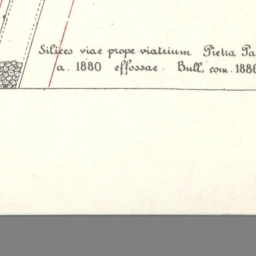 Silices viae prope viatrium Pietra Pa
a. 1880 effossae. Bull. com. 1886